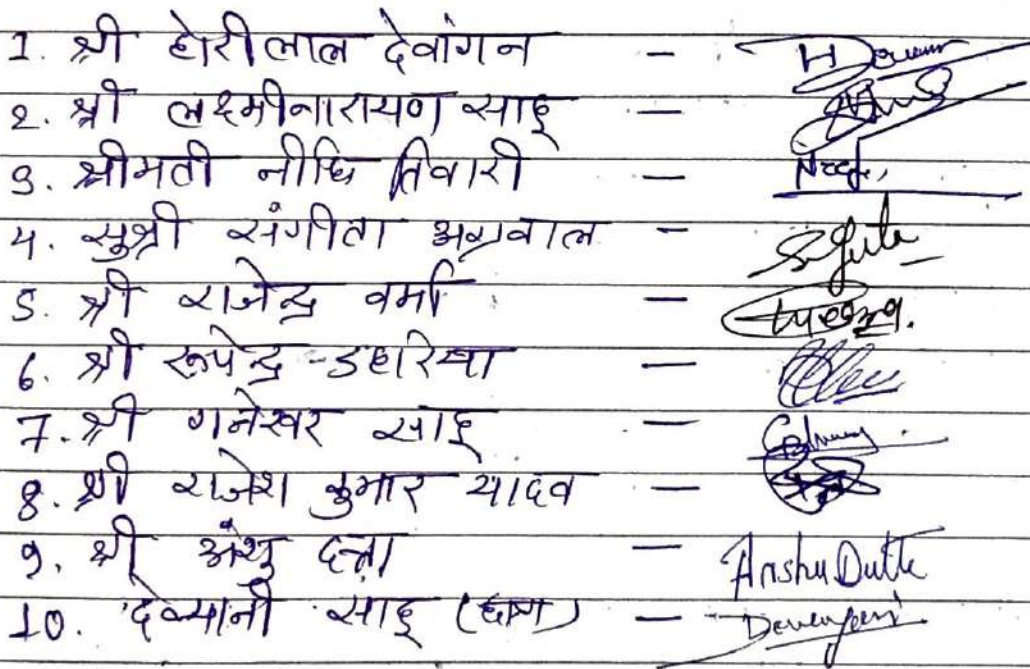 1. श्री होरीलाल देवांगन -
2. श्री लक्ष्मीनारायण साहू -
3. श्रीमती नीधि तिवारी -
4. सुश्री संगीता अग्रवाल -
5. श्री राजेन्द्र वर्मा -
6. श्री रूपेन्द्र डहरिया -
7. श्री गनेश्वर साहू -
8. श्री राजेश कुमार यादव -
9. श्री अंशु दत्ता - Anshu Dutta
10. देव्यानी साहू (छात्रा) -